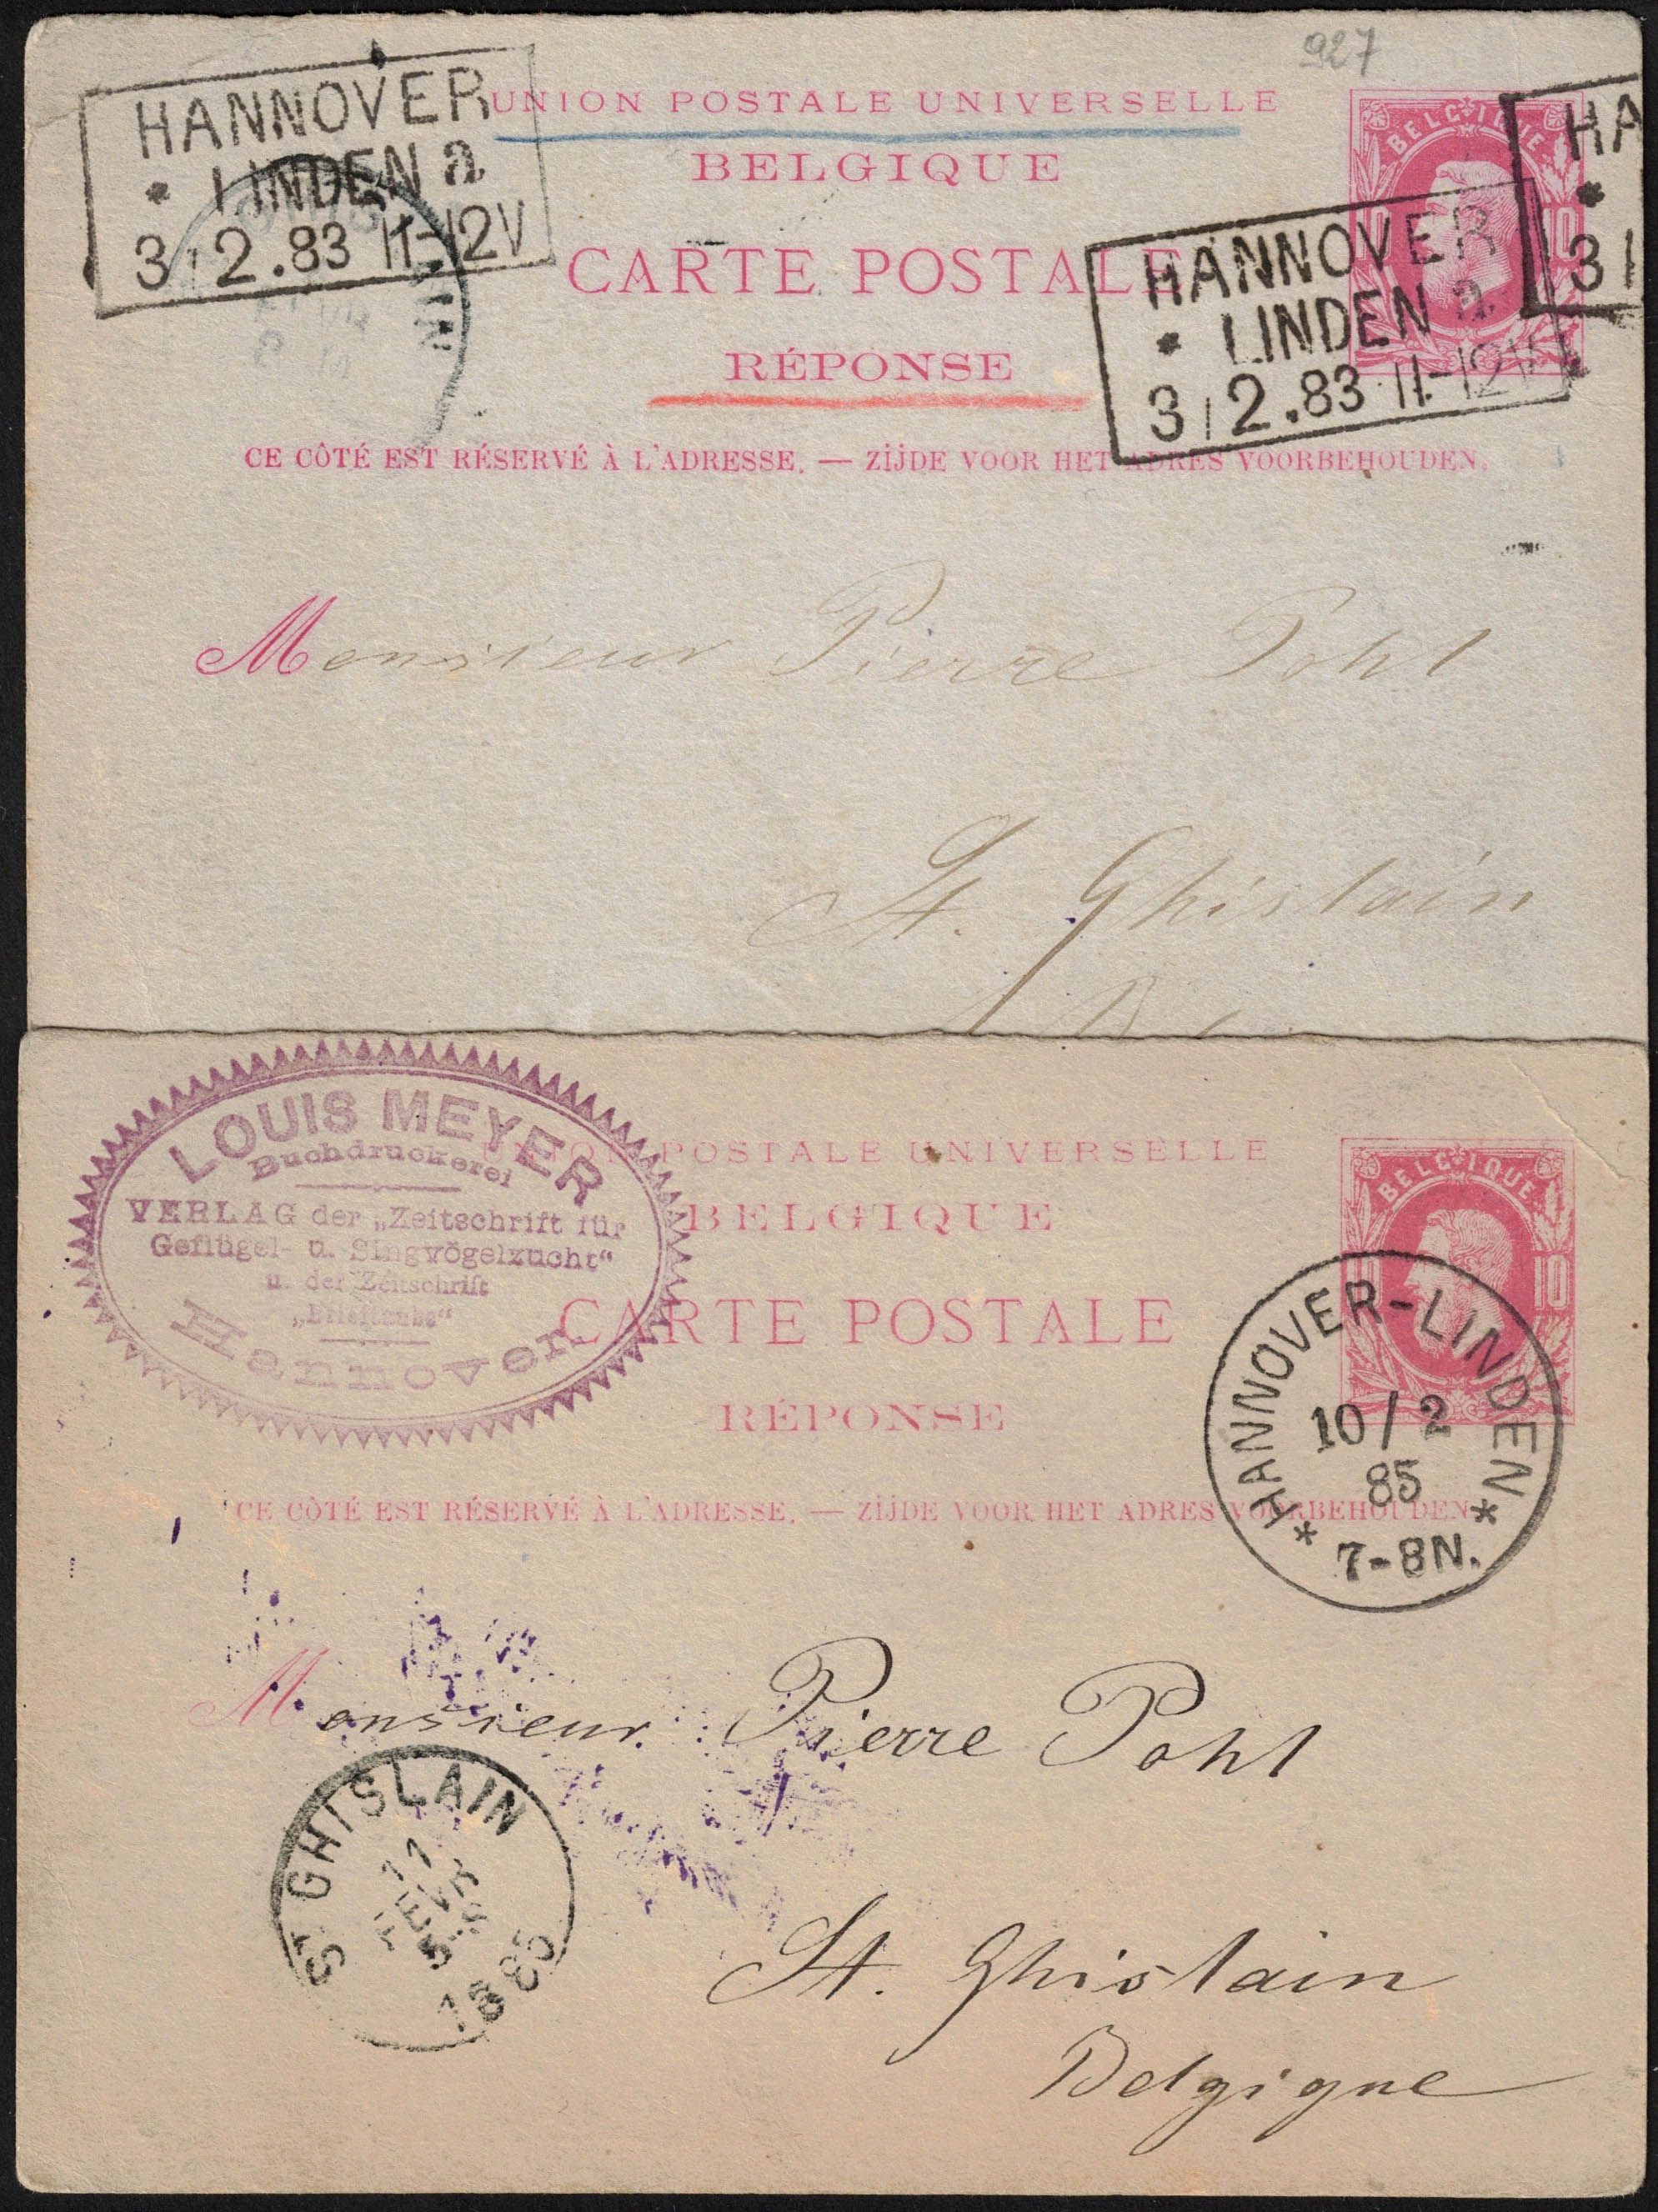 927
UNION POSTALE UNIVERSELLE
BELGIQUE
CARTE POSTALE
RÉPONSE
BELGIQUE
10 10
HANNOVER
* LINDEN a
3 | 2.83 11-12V
HANNOVER
* LINDEN a
3 | 2.83 11-12V
HA
*
3 |
CE CÔTÉ EST RÉSERVÉ À L'ADRESSE. — ZIJDE VOOR HET ADRES VOORBEHOUDEN.
Monsieur Pierre Pohl
St. Ghislain
LOUIS MEYER
Buchdruckerei
VERLAG der „Zeitschrift für
Geflügel- u. Singvögelzucht“
u. der Zeitschrift
Hannover
UNION POSTALE UNIVERSELLE
BELGIQUE
CARTE POSTALE
RÉPONSE
BELGIQUE
10 10
HANNOVER-LINDEN
10/2
85
* 7-8N. *
CE CÔTÉ EST RÉSERVÉ À L'ADRESSE. — ZIJDE VOOR HET ADRES VOORBEHOUDEN.
Monsieur Pierre Pohl
ST GHISLAIN
11
FEVR
1885
St. Ghislain
Belgique